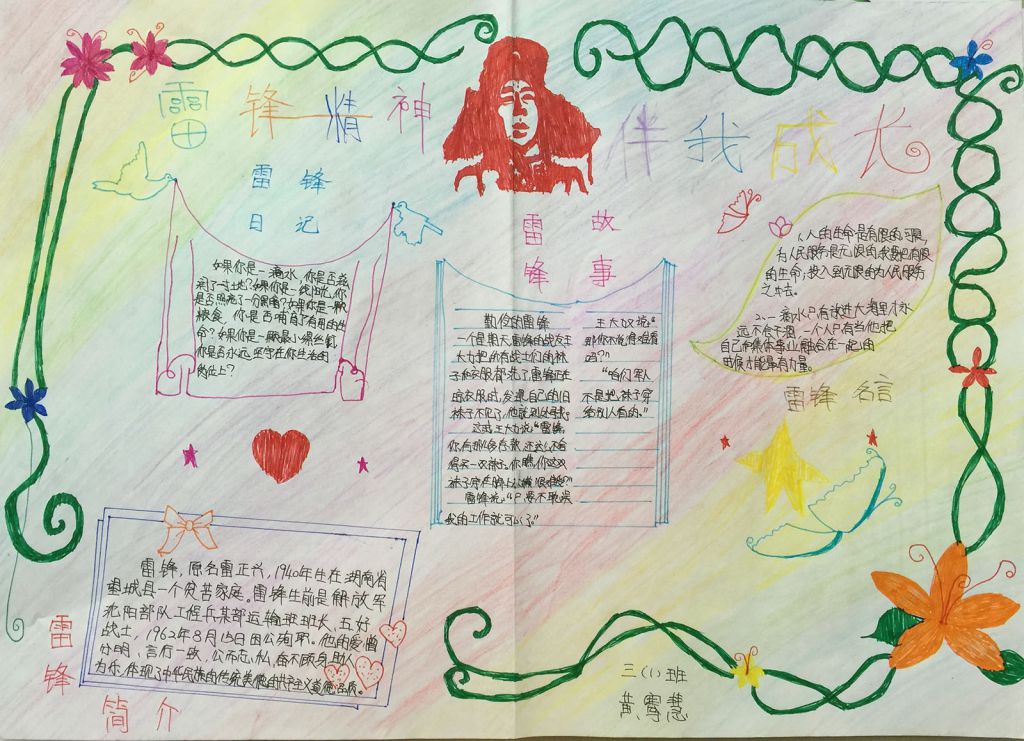 雷锋精神
伴我成长
雷锋
日记
如果你是一滴水，你是否滋
润了一寸土地？如果你是一线阳光，你
是否照亮了一分黑暗？如果你是一颗
粮食，你是否哺育了有用的生
命？如果你是一颗最小的螺丝钉，
你是否永远坚守在你生活的
岗位上？
雷故
锋事
勤俭的雷锋
一个星期天，雷锋的战友王
大力把所有战士们的袜
子和衣服都洗了，雷锋正在
晾衣服时，发现自己的旧
袜子不见了，他就到处寻找。
这时，王大力说：“雷锋，
你有那么多存款，还这么不舍
得买一双袜子。你瞧，你这双
袜子穿在脚上
雷锋说：“只要不耽误
我的工作就可以了。”
王大力又说：“
那你不觉得难看
吗？”
“咱们军人
不是把袜子穿
给别人看的。”
1、人的生命是有限的，可是，
为人民服务是无限的，我要把有限
的生命，投入到无限的为人民服务
之中去。
2、一滴水只有放进大海里才永
远不会干涸，一个人只有当他把
自己和集体事业融合在一起的
时候才能最有力量。
雷锋名言
雷锋，原名雷正兴，1940年生在湖南省
望城县一个贫苦家庭。雷锋生前是解放军
沈阳部队工程兵某部运输班班长、五好
战士，1962年8月15日因公殉职。他的爱憎
分明、言行一致、公而忘私、奋不顾身、助人
为乐，体现了中华民族的传统美德和共产主义道德品质。
雷
锋
简介
三（1）班
黄雪慧